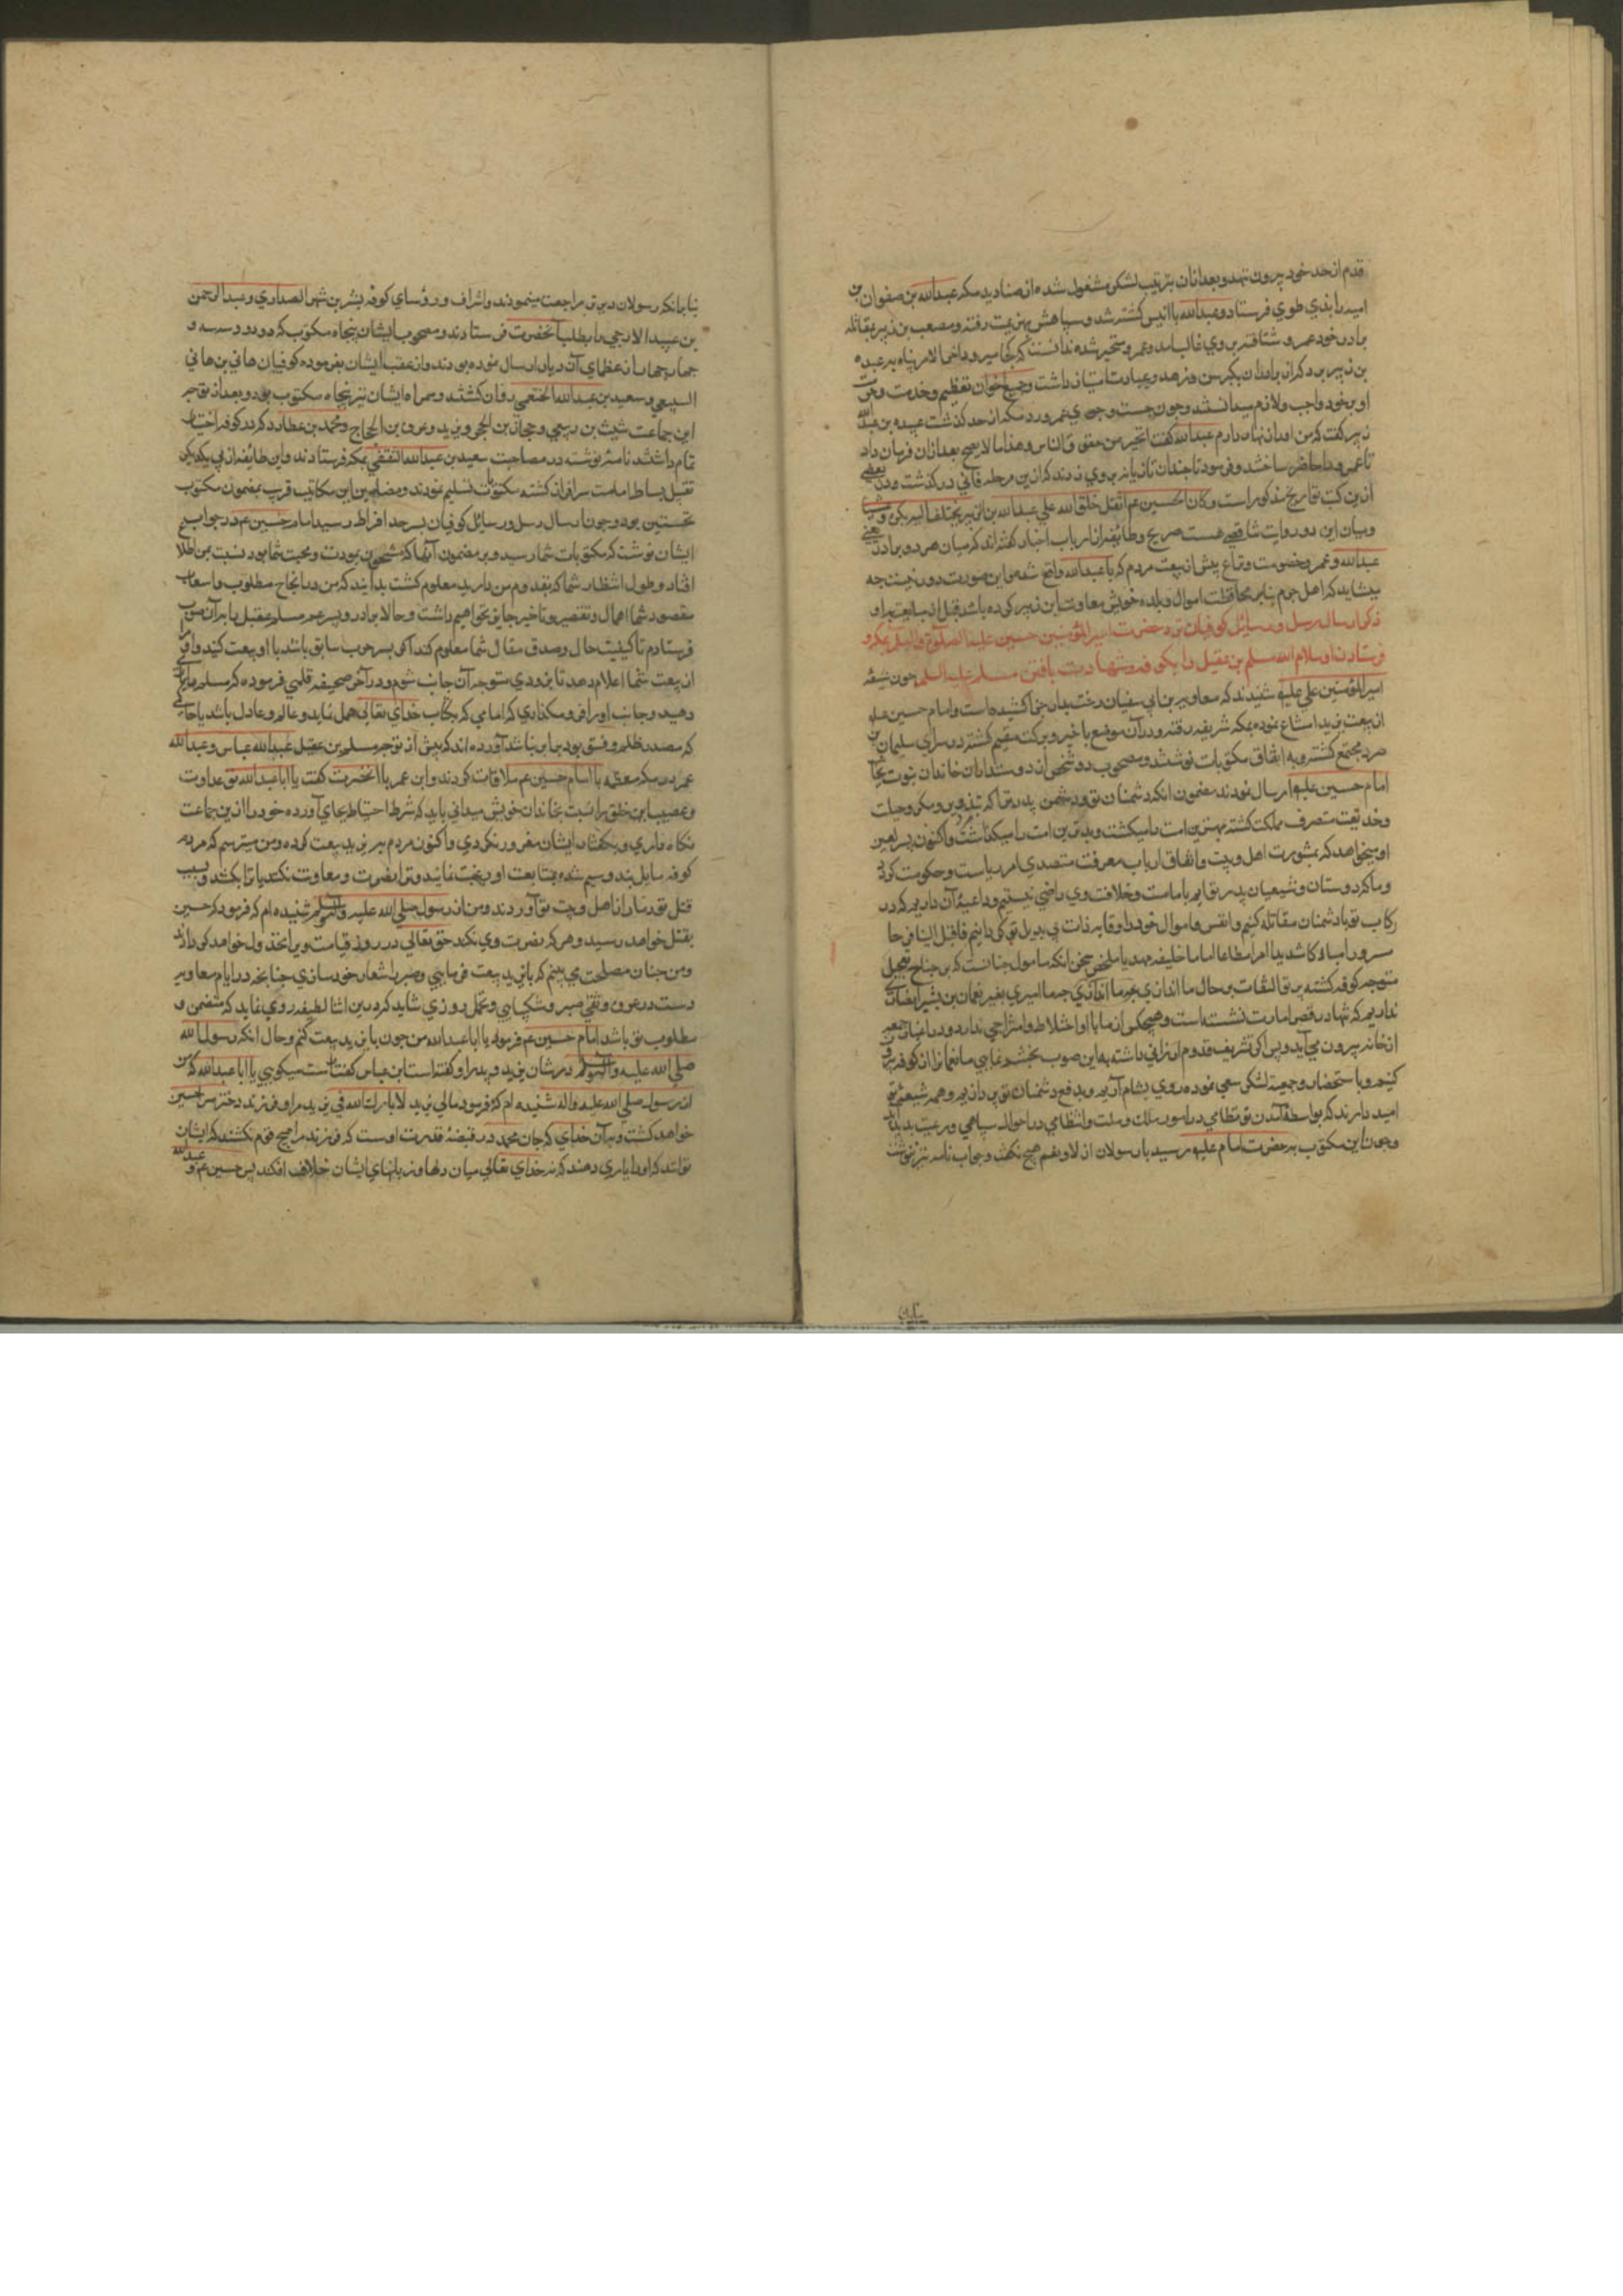 قدم از حد خود بیرون نهد و بعد ازان بترتیب لشکر مشغول شده از صنادید مکه عبدالله بن صفوان بن
امیه را بذی طوی فرستاد و عبدالله با انیس کشته شد و سپاهش بهزیمت رفته و مصعب بن زبیر بمقاتله
برادر خود عمرو شتافته بر وی غالب آمد و عمرو متحیر شده ندانست که کجا میرود اخر الامر پناه به عبده
بن زبیر برد که از برادران بکبر سن و زهد و عبادت امتیاز داشت و جمیع اخوان تعظیم و خدمت و حرمت
او بر خود واجب و لازم میدانستند و چون جست و جوی عمرو در مکه از حد کذشت عبیده بن عبدالله
زبیر کفت که من او را پناه دارم عبدالله کفت اتجیر من حقوق الناس و هذا ما لا یصح بعد ازان فرمان داد
تا عمرو را حاضر ساختند و فرمود تا چندان تازیانه بر وی زدند که ازین مرحله فانی در کذشت و در بعضی
ازین کتب تواریخ مذکور است و کان الحسین عم اثقل خلق الله علی عبدالله بن الزبیر
و میان این دو روایت تناقضی هست صریح و طایفه از ارباب اخبار کفته اند که میان هر دو برادر یعنی
عبدالله و عمرو خصومت و نزاع پیش از بیعت مردم که با عبدالله واقع شده و این صورت دور نیست چه
میشاید که اهل حرم بنابر محافظت اموال و بلده خویش معاونت ابن زبیر کرده باشد قبل از مبایعت با او
ذکر ارسال رسل و رسائل کوفیان نزد حضرت امیر المؤمنین حسین علیه الصلوة و السلم بمکه و
فرستادن او سلام الله مسلم بن عقیل را بکوفه و شهادت یافتن مسلم علیه السلم چون شیعه
امیر المؤمنین علی علیه شنیدند که معاویه بن ابی سفیان رخت بدار جزا کشیده است و امام حسین علیه
از بیعت یزید امتناع نموده بمکه شریفه رفته و در آن موضع با خیر و برکت مقیم کشته در سرای سلیمان بن
صرد مجتمع کشته و به اتفاق مکتوبات نوشتند و مصحوب دو شخص از دوستداران خاندان نبوت بجانب
امام حسین علیه ارسال نمودند مضمون انکه دشمنان تو و دشمن پدر تو که بتزویر و مکر و حیلت
و خدیعت متصرف مملکت کشته بهترین امت را میکشت و بدترین امت را میکذاشت و اکنون پسر لعین
او میخواهد که بمشورت اهل و بیت و اتفاق ارباب معرفت متصدی امر ریاست و حکومت کردد
و ما که دوستان و شیعیان پدر تو ایم بامامت و خلافت وی راضی نیستیم و داعیه آن داریم که در
رکاب تو با دشمنان مقاتله کنیم و انفس و اموال خود را وقایه ذات بی بدیل تو کردانیم فاقبل الینا فرحا
مسرورا مبارکا شدیدا امرا مطاعا اماما خلیفه مهدیا ملخص سخن انکه مامول چنانست که بر جناح تعجیل
متوجه کوفه کشته پرتو التفات بر حال ما اندازی چه ما اکنون امیری بغیر نعمان بن بشیر انصاری
نداریم که تنها در قصر امارت نشسته است و هیچکس از ما با او اختلاط و امتزاجی ندارد و در اعیاد و جمعه
از خانه بیرون می آید و پس اکر تشریف قدوم ارزانی داشته به این صوب بخشم نمایی ما نعمان را از کوفه بیرون
کنیم و باستحضار و جمعیت لشکر سعی نموده روی بشام آریم و بدفع دشمنان تو پردازیم و همه شیعه تو
امید دارند که بواسطه آمدن تو نظامی در امور ملک و ملت و انتظامی در احوال سپاهی و رعیت پدید آید
و چون این مکتوب به حضرت امام علیه رسید با رسولان از لا و نعم هیچ نکفت و جواب نامه نیز ننوشت
بنابرانکه رسولان دیرتر مراجعت مینمودند و اشراف و رؤسای کوفه بشر بن شهر الصداری و عبدالرحمن
بن عبید الارحبی را بطلب آنحضرت فرستادند و مصحوب ایشان پنجاه مکتوب که دو دو و سه سه و
چهار چهار از عظمای آن دیار ارسال نموده بودند و از عقب ایشان بفرموده کوفیان هانی بن هانی
السبیعی و سعید بن عبدالله الخثعمی روان کشتند و همراه ایشان نیز پنجاه مکتوب بود و بعد از توجه
این جماعت شبث بن ربعی و حجار بن ابجر و یزید و عروه بن الحجاج و محمد بن عطارد که در کوفه اختیار
تمام داشتند نامه نوشته در مصاحبت سعید بن عبدالله الثقفی بمکه فرستادند و این طایفه از پی یکدیکر
تقبیل بساط امامت سرافراز کشته مکتوبات تسلیم نمودند و مضامین این مکاتیب قریب بمضمون مکتوب
نخستین بود و چون ارسال رسل و رسائل کوفیان بسرحد افراط رسید امام حسین عم در جواب
ایشان نوشت که مکتوبات شما رسید و بر مضمون آنها که مشحون بمودت و محبت شما بود نسبت بمن اطلاع
افتاد و طول انتظار شما که بقدوم من دارید معلوم کشت بدانید که من در انجاح مطلوب و اسعاف
مقصود شما اهمال و تقصیر و تاخیر جایز نخواهیم داشت و حالا برادر و پسر عم مسلم عقیل را بدان صوب
فرستادم تا کیفیت حال و صدق مقال شما معلوم کند اکر بر موجب سابق باشد با او بیعت کنید و او
از بیعت شما اعلام دهد تا بزودی متوجه آن جانب شوم و در آخر صحیفه قلمی فرموده که مسلم را یاری
دهید و جانب او را فرو مکذارید که امامی که بکتاب خدای تعالی عمل نماید و عالم و عادل باشد با حاکمی
که مصدر ظلم و فسق بود برابر نباشد آورده اند که پیش از توجه مسلم بن عقیل عبدالله عباس و عبدالله
عمر در مکه معظمه با امام حسین عم ملاقات کردند و ابن عمر با آنحضرت کفت یا ابا عبدالله تو عداوت
و عصیب این خلق را نسبت بخاندان خویش میدانی باید که شرط احتیاط بجای آورده خود را ازین جماعت
نکاه داری و بکفتار ایشان مغرور نکردی و اکنون مردم به یزید بیعت کرده و من میترسم که مردم
کوفه مایل بزر و سیم شده بمتابعت او رغبت نمایند و ترا نصرت و معاونت نکنند یا ترا بکشند و بسبب
قتل تو دمار از اهل و بیت تو آوردند و من از رسول صلی الله علیه و آله وسلم شنیده ام که فرمود که حسین
بقتل خواهد رسید و هر که نصرت وی نکند حق تعالی در روز قیامت ویرا مخذول خواهد کردانید
و من چنان مصلحت می بینم که با یزید بیعت فرمایی و صبر را شعار خود سازی چنانچه در ایام معاویه
دست در عروه وثقی صبر و شکیبایی و تحمل روزی شاید که درین اثنا لطیفه روی نماید که متضمن
مطلوب تو باشد امام حسین عم فرمود یا ابا عبدالله من چون با یزید بیعت کنم و حال انکه رسول الله
صلی الله علیه و آله وسلم در شان یزید و پدر او کفته است ابن عباس کفت راست میکویی یا ابا عبدالله که من
از رسول صلی الله علیه و اله شنیده ام که فرمود مالی یزید لا بارک الله فی یزید مرا و فرزند دختر من حسین
خواهد کشت و بدآن خدای که جان محمد در قبضه قدرت اوست که فرزند مرا هیچ قوم نکشند که ایشان
توانند که او را یاری دهند که نه خدای تعالی میان دلها و زبانهای ایشان خلاف افکند پس حسین عم و عبدالله